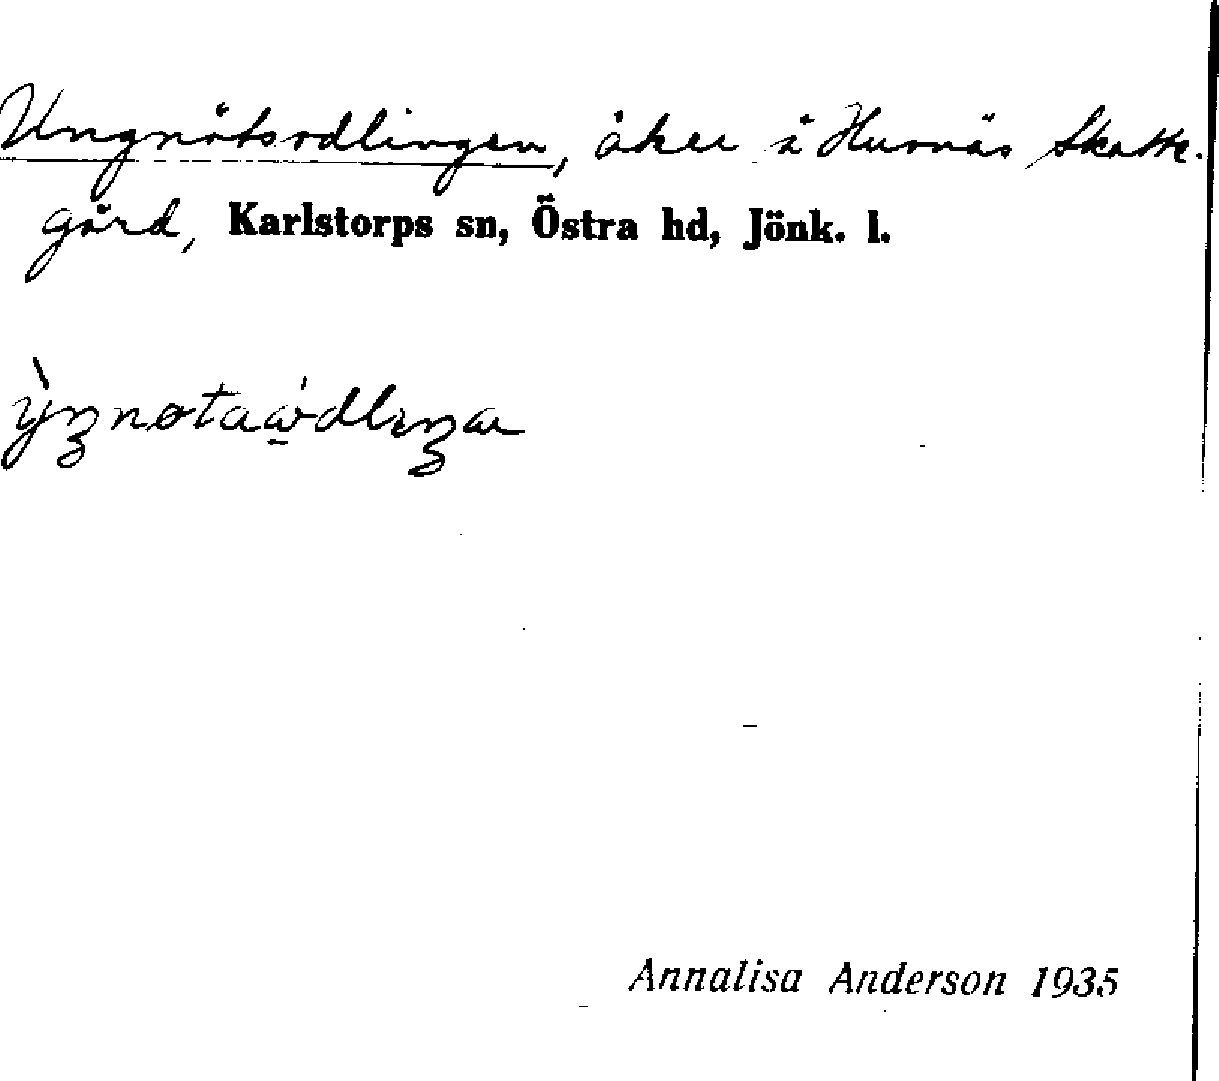 Ungnötsodlingen, åker å Husnäs Skatte-
gård, Karlstorps sn, Östra hd, Jönk. l.
Annalisa Anderson 1935